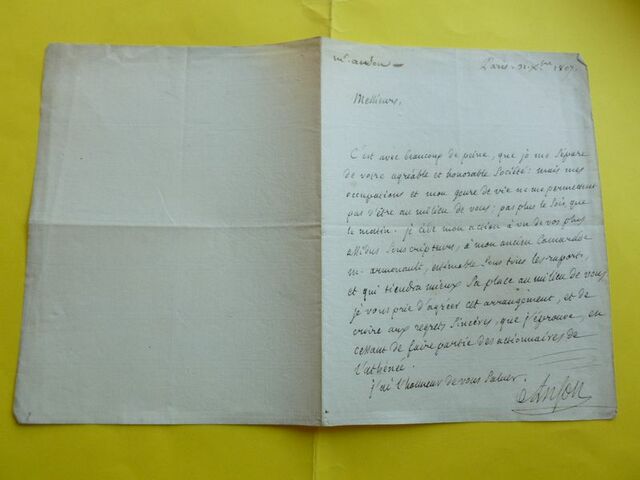 mr. anson
Paris. 31. Xbre 1807.
Messieurs,
C'est avec beaucoup de peine, que je me sépare
de votre agréable et honorable Société: mais mes
occupations et mon genre de vie ne me permettent
pas d'être au milieu de vous; pas plus le soir, que
le matin. je cède mon action à un de vos plus
assidus souscripteurs, à mon ancien Camarade
m. estimable sous tous les raports,
et qui tiendra mieux sa place au milieu de vous
je vous prie d'agréer cet arrangement, et de
croire aux regrets sincères, que j'éprouve, en
cessant de faire partie des actionnaires de
l'athénée.
j'ai l'honneur de vous saluer.
Anson